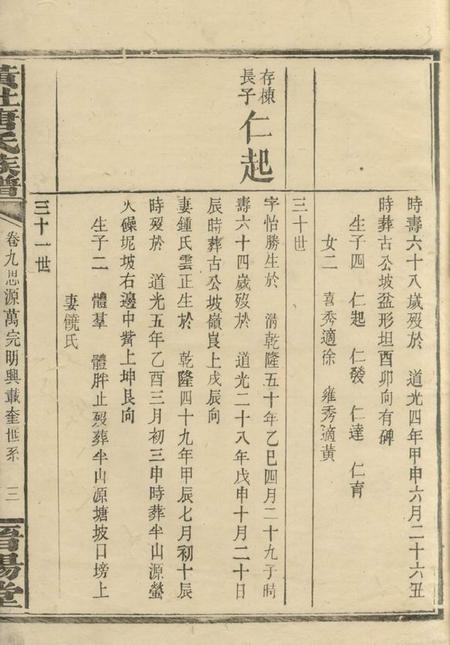 時壽六十八歲歿於　道光四年甲申六月二十六丑
時葬古公坡盆形坦酉卯向有碑
生子四　仁起　仁發　仁達　仁育
女二　喜秀適徐　雍秀適黃
三十世
存棟
長子
仁起
字怡勝生於　淸乾隆五十年乙巳四月二十九子時
壽六十四歲歿於　道光二十八年戊申十月二十日
辰時葬古公坡嶺艮上戌辰向
妻鍾氏雲正生於　乾隆四十九年甲辰七月初十辰
時歿於　道光五年乙酉三月初三申時葬半山源螢
火磜坭坡右邊中嘴上坤艮向
生子二　體羣　體胖止歿葬半山源塘坡口塝上
妻饒氏
三十一世
黃社唐氏族譜
卷九思源萬完明興載奎世系
三
晉陽堂